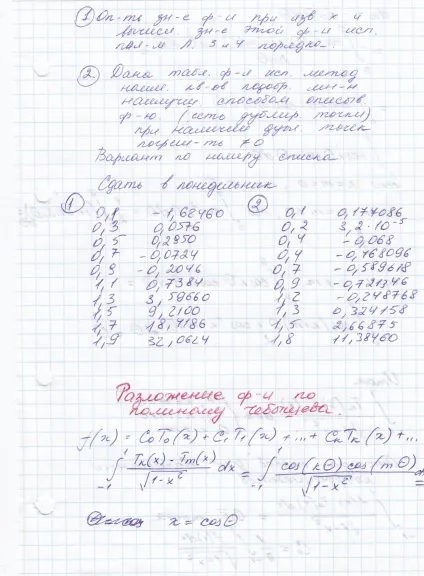 ① Оп-ть зн-е ф-и при изв. x и
вычисл. зн-е этой ф-и исп.
пол-м Л. 3 и 4 порядко
② Дана табл. ф-я исп. метод
наим. кв-ов подобр. мн-н
наилучш способом описыв.
ф-ю. (есть дублир. точки)
при наличии дубл. точек
погреш-ть ≠ 0
Вариант по номеру списка
Сдать в понедельник
① ②
0,1 -1,68460 0,1 0,174086
0,3 0,0576 0,2 3,2·10⁻⁵
0,5 0,2950 0,4 -0,068
0,7 -0,0724 0,4 -0,168096
0,9 -0,2046 0,7 -0,589618
1,1 0,7384 0,9 -0,721346
1,3 3,59660 1,2 -0,248768
1,5 9,2100 1,3 0,324158
1,7 18,7186 1,5 2,66875
1,9 32,0624 1,8 11,38460
Разложение ф-и по
полиному Чебышева.
f(x) = C₀T₀(x) + C₁T₁(x) + ... + CₖTₖ(x) + ...
∫₋₁¹ Tₖ(x) - Tₘ(x) / √(1-x²) dx = ∫₋₁¹ cos(kΘ) cos(mΘ) / √(1-x²) =
x = cosΘ